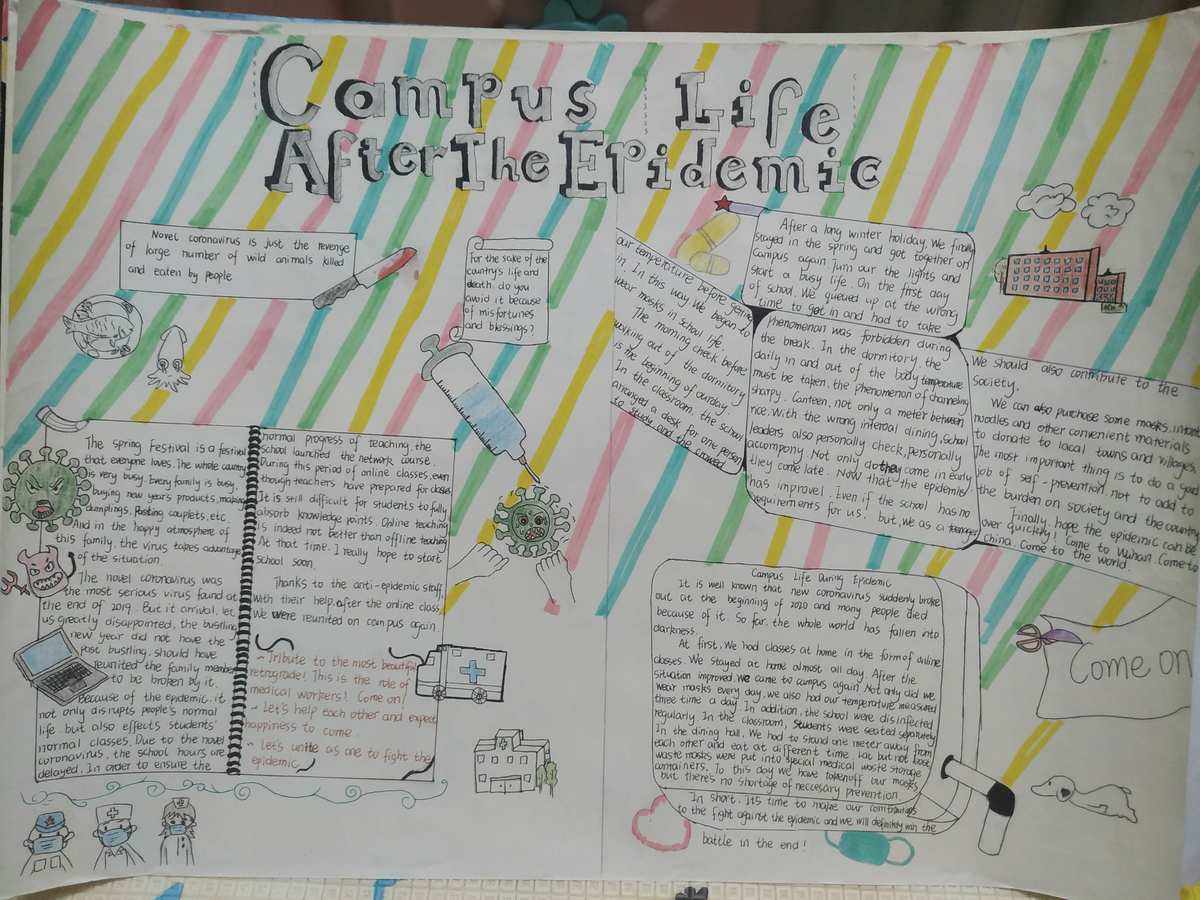 Campus Life
After The Epidemic
Novel coronavirus is just the revenge
of large number of wild animals killed
and eaten by people
For the sake of the
country's life and
death. do you
avoid it because
of misfortunes
and blessings?
The Spring Festival is a festival
that everyone loves. The whole country
is very busy. Every family is busy.
buying new year's products, making
dumplings, Pasting couplets, etc.
And in the happy atmosphere of
this family, the virus takes advantage
of the situation.
The novel coronavirus was
the most serious virus found at
the end of 2019. But it arrival, let
us greatly disappointed, the bustling
new year did not have the
past bustling, should have
reunited the family member
to be broken by it.
Because of the epidemic, it
not only disrupts people's normal
life. but also effects students'
normal classes. Due to the novel
coronavirus, the school hours are
delayed. In order to ensure the
normal progress of teaching, the
school launched the network course.
During this period of online classes, even
though teachers have prepared for classes
It is still difficult for students to fully
absorb knowledge points. Online teaching
is indeed not better than offline teaching
At that time. I really hope to start
school soon.
Thanks to the anti-epidemic staff,
with their help, after the online class,
We were reunited on campus again
~ Tribute to the most beautiful
retrograde! This is the role of
medical workers! Come on!
~ Let's help each other and expect
happiness to come.
~ Let's unite as one to fight the
epidemic
After a long winter holiday, We finally
stayed in the spring and got together on
campus again. Turn our the lights and
start a busy life. On the first day
of school. We queued up at the wrong
time to get in and had to take
our temperature before getting
in. In this way. We began to
wear masks in school life.
The morning check before
walking out of the dormitory
is the beginning of ourday.
In the classroom, the school
arranged a desk for one person
to study and the crowed
Phenomenon was forbidden during
the break. In the dormitory, the
daily in and out of the body temperature
must be taken. the phenomenon of channeling
sharpy. Canteen, not only a meter between
rice. With the wrong interval dining, school
leaders also personally check, personally
accompony. Not only do they come in early
they come late. Now that the epidemic
has improvel. Even if the school has no
requirements for us. but, we as a teenager
We should also contribute to the
society.
We can also purchase some masks,
noodles and other convenient materials
to donate to local towns and villages.
The most important thing is to do a good
job of self-prevention, not to add to
the burden on society and the country
Finally, hope the epidemic can be
over quickly! Come to Wuhan. Come to
China. Come to the world.
Campus Life During Epidemic
It is well known that new coronavirus suddenly broke
out at the beginning of 2020 and many people died
because of it. So far. the whole world has fallen into
darkness.
At first. We had classes at home in the form of online
classes. We stayed at home almost all day. After the
situation improved. We came to campus again! Not only did we
wear masks every day. we also had our temperature measured
three time a day. In addition, the school were disinfected
regularly. In the classroom, students were seated separately
In the dining hall. We had to stand one meter away from
each other and eat at different time. Last but not lose,
waste masks were put into special medical waste storage
containers. To this day we have takenoff our masks
but there's no shortage of neccesary prevention
In short. Its time to make our contributions
to the fight against the epidemic and we will definitely win the
battle in the end!
Come on